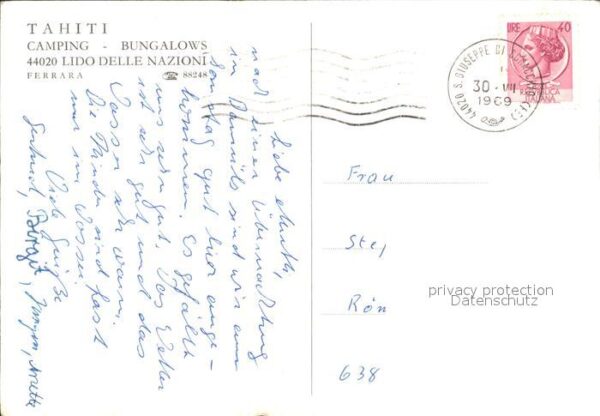 TAHITI
CAMPING - BUNGALOWS
44020 LIDO DELLE NAZIONI
FERRARA ☎ 88248
Liebe
nach einer Übernachtung
in sind wir am
Sonntag gut hier ange-
kommen. Es gefällt
uns sehr gut. Das Wetter
ist sehr gut und das
Wasser sehr warm.
Die Kinder sind fast
nur im Wasser.
Viele Grüße
Gertrud, Birgit, Annette
LIRE 40
44020 S. GIUSEPPE DI COMACCHIO (FE)
30 - VII
1969
Frau
Stef
Rön
638
privacy protection
Datenschutz